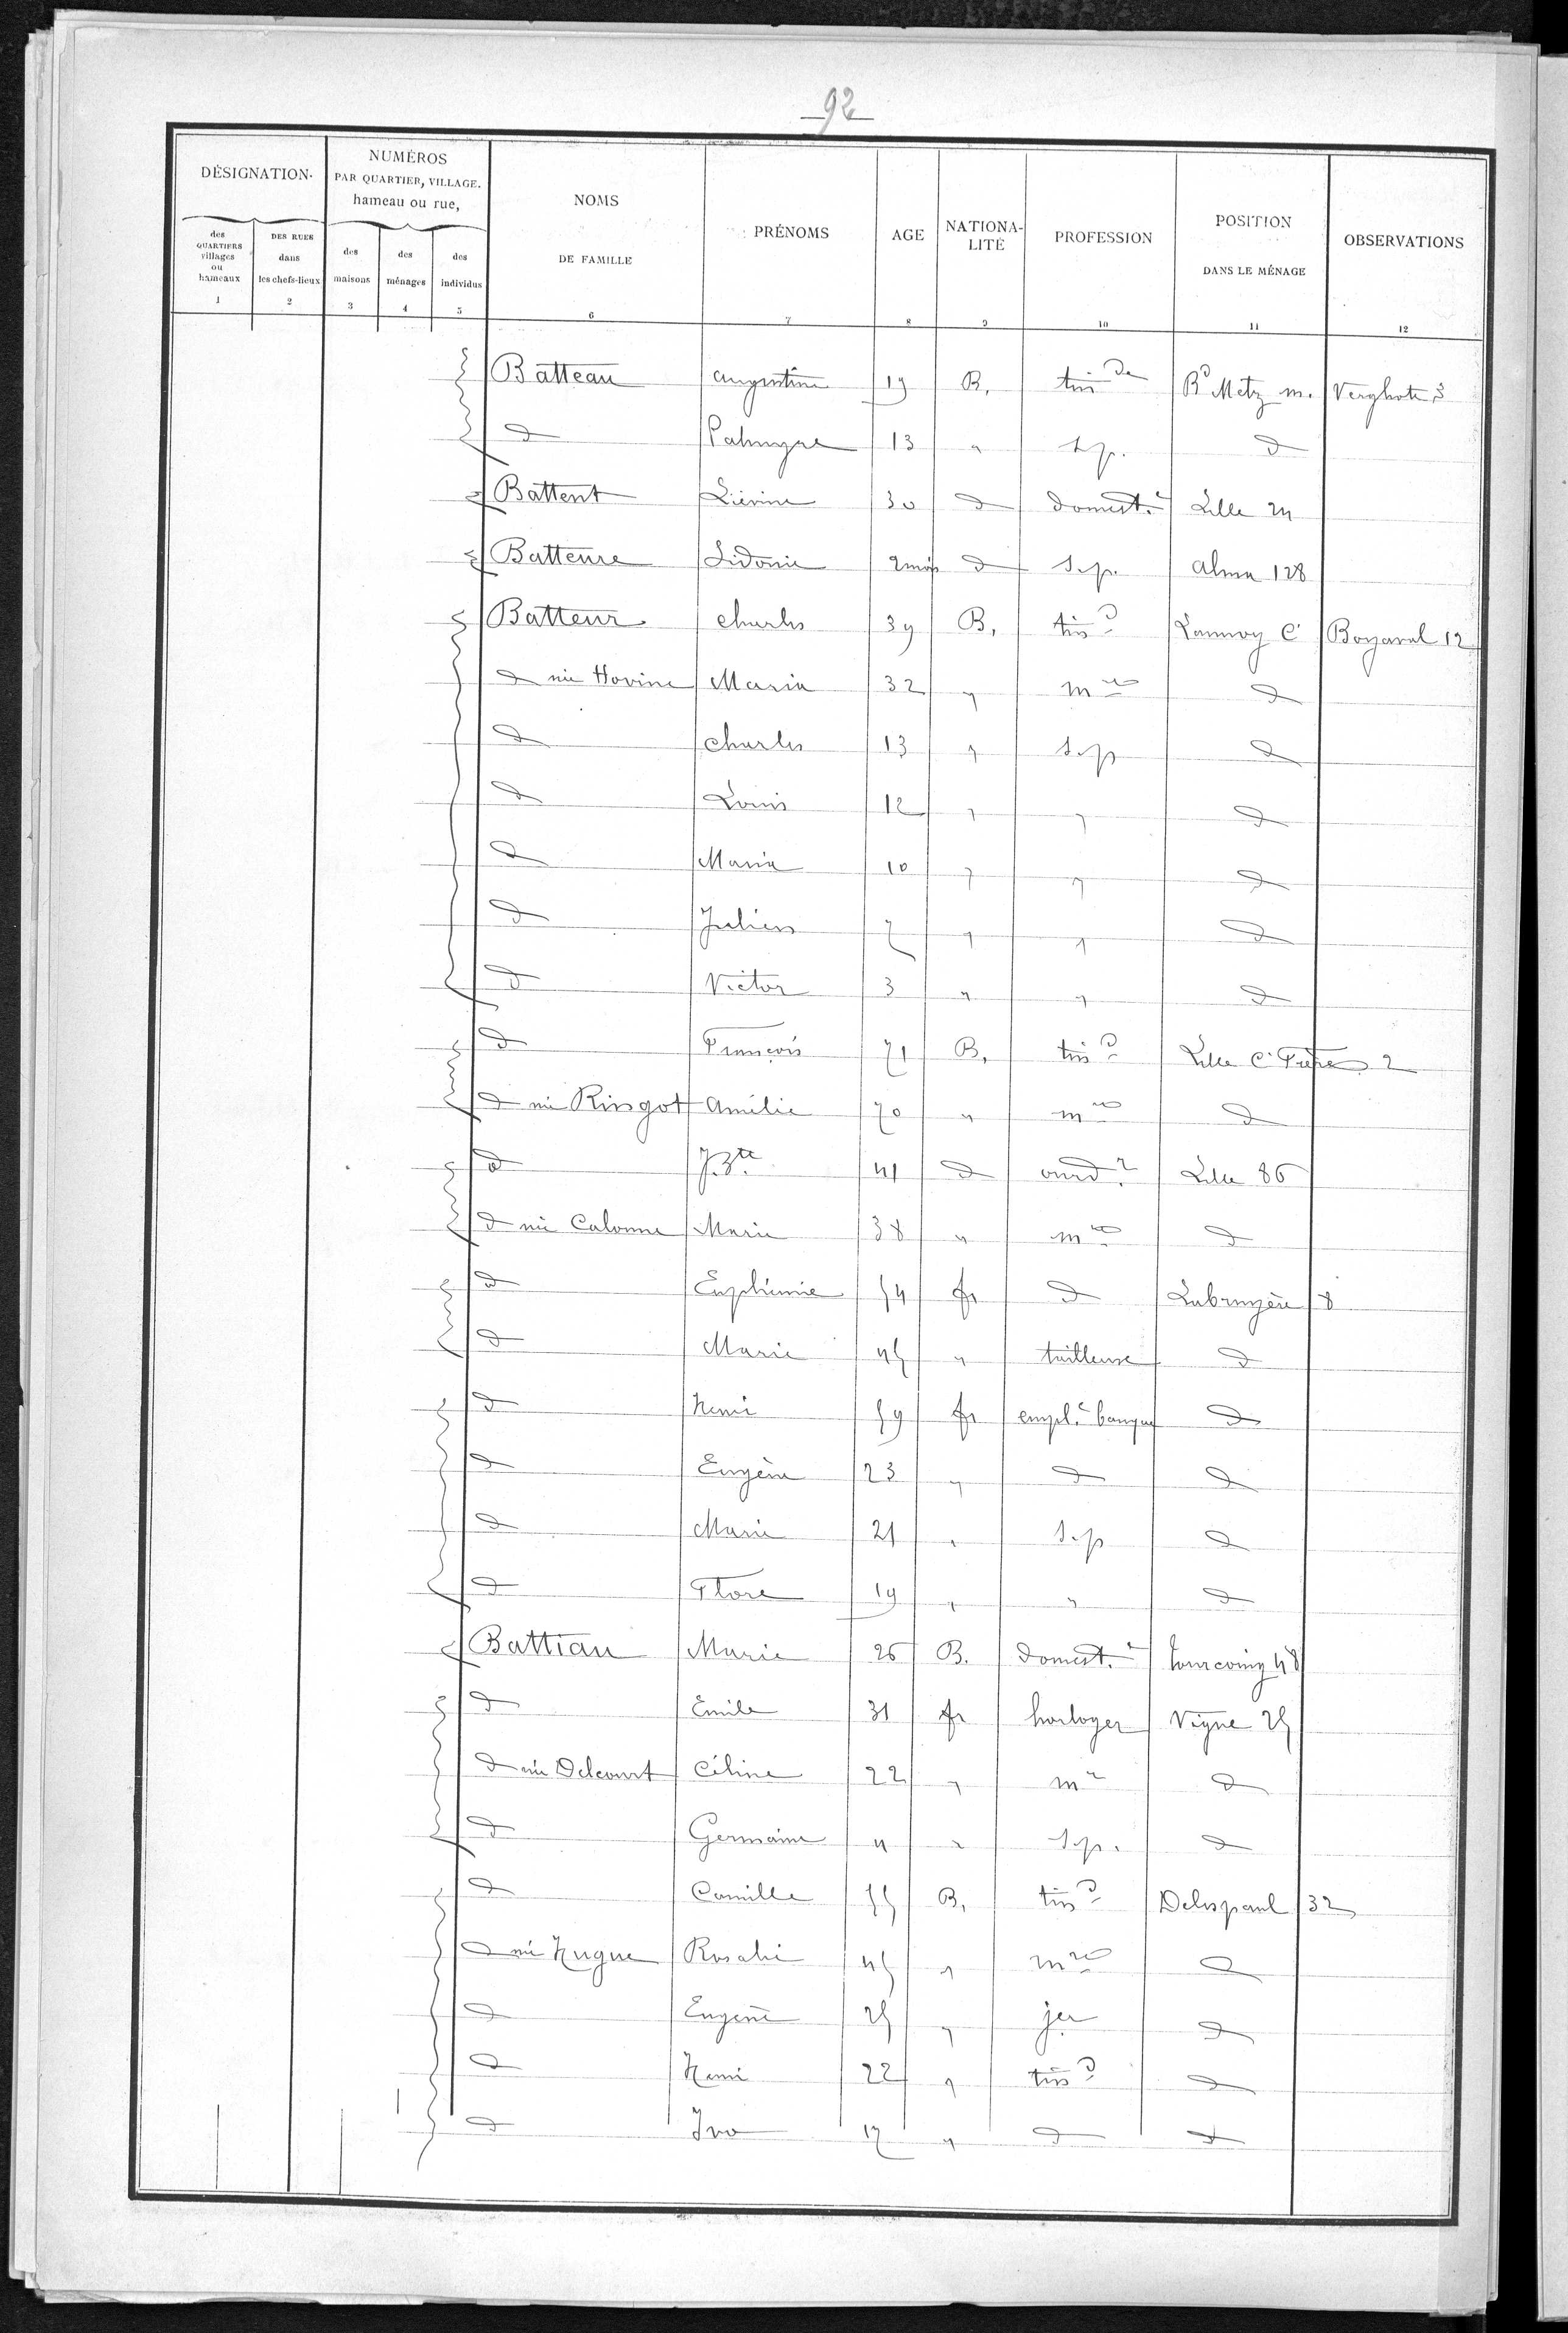 92
DÉSIGNATION.
NUMÉROS
PAR QUARTIER, VILLAGE.
hameau ou rue,
des QUARTIERS villages ou hameaux
DES RUES dans les chefs-lieux
des maisons
des ménages
des individus
NOMS
DE FAMILLE
PRÉNOMS
AGE
NATIONA-
LITÉ
PROFESSION
POSITION
DANS LE MÉNAGE
OBSERVATIONS
1 2 3 4 5 6 7 8 9 10 11 12
Batteau 19 B. tis de Bd Metz m. Verghote 3
d Palmyre 13 " s.p. d
Battent Liévine 30 d domest. Lille 24
Batteure Sidonie 2 mois d s.p. Alma 128
Batteur Charles 39 B. tis d Lannoy C Boyaval 12
d née Hovine Maria 32 " m re d
d Charles 13 " s.p d
d Louis 12 " " d
d Maria 10 " " d
d Julien 7 " " d
d Victor 3 " " d
d François 71 B. tis d Lille C. Frères 2
d née Ringot Amélie 70 " m re d
d J. Bte 41 d ourd r Lille 86
d née Calonne Marie 38 " m re d
d Euphémie 54 fr d Labruyère 8
d Marie 45 " tailleuse d
d Henri 59 fr empl. banque d
d Eugène 23 " d d
d Marie 21 " s.p d
d Flore 19 " " d
Battiau Marie 26 B. domest. Tourcoing 48
d Emile 31 fr horloger Vigne 25
d née Delcourt Céline 22 " m re d
d Germaine 4 " s.p. d
d Camille 55 B. tis d Delespaul 32
d née Hugue Rosalie 45 " m re d
d Eugène 25 " jer d
d Henri 22 " tis d d
d Ivo 17 " d d